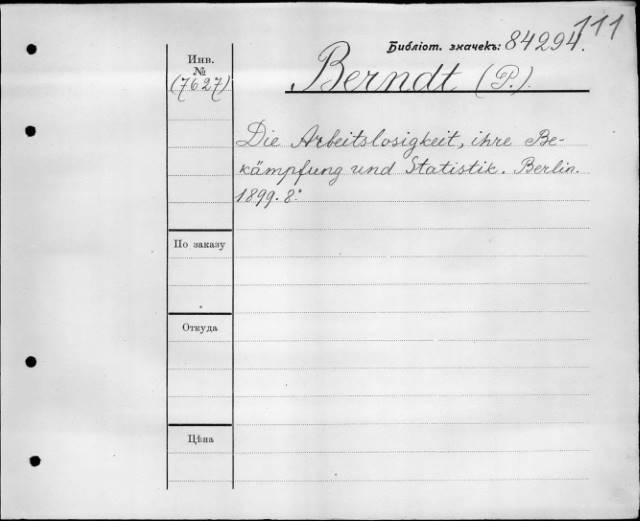 111
Библіот. значекъ: 84294.
Инв.
№
(7627)
Berndt (P.).
Die Arbeitslosigkeit, ihre Be-
kämpfung und Statistik. Berlin.
1899. 8°.
По заказу
Откуда
Цѣна